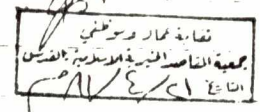 نقابة عمال وموظفي
جمعية المقاصد الخيرية الاسلامية بالقدس
التاريخ ٢١ / ٤ / ٨١